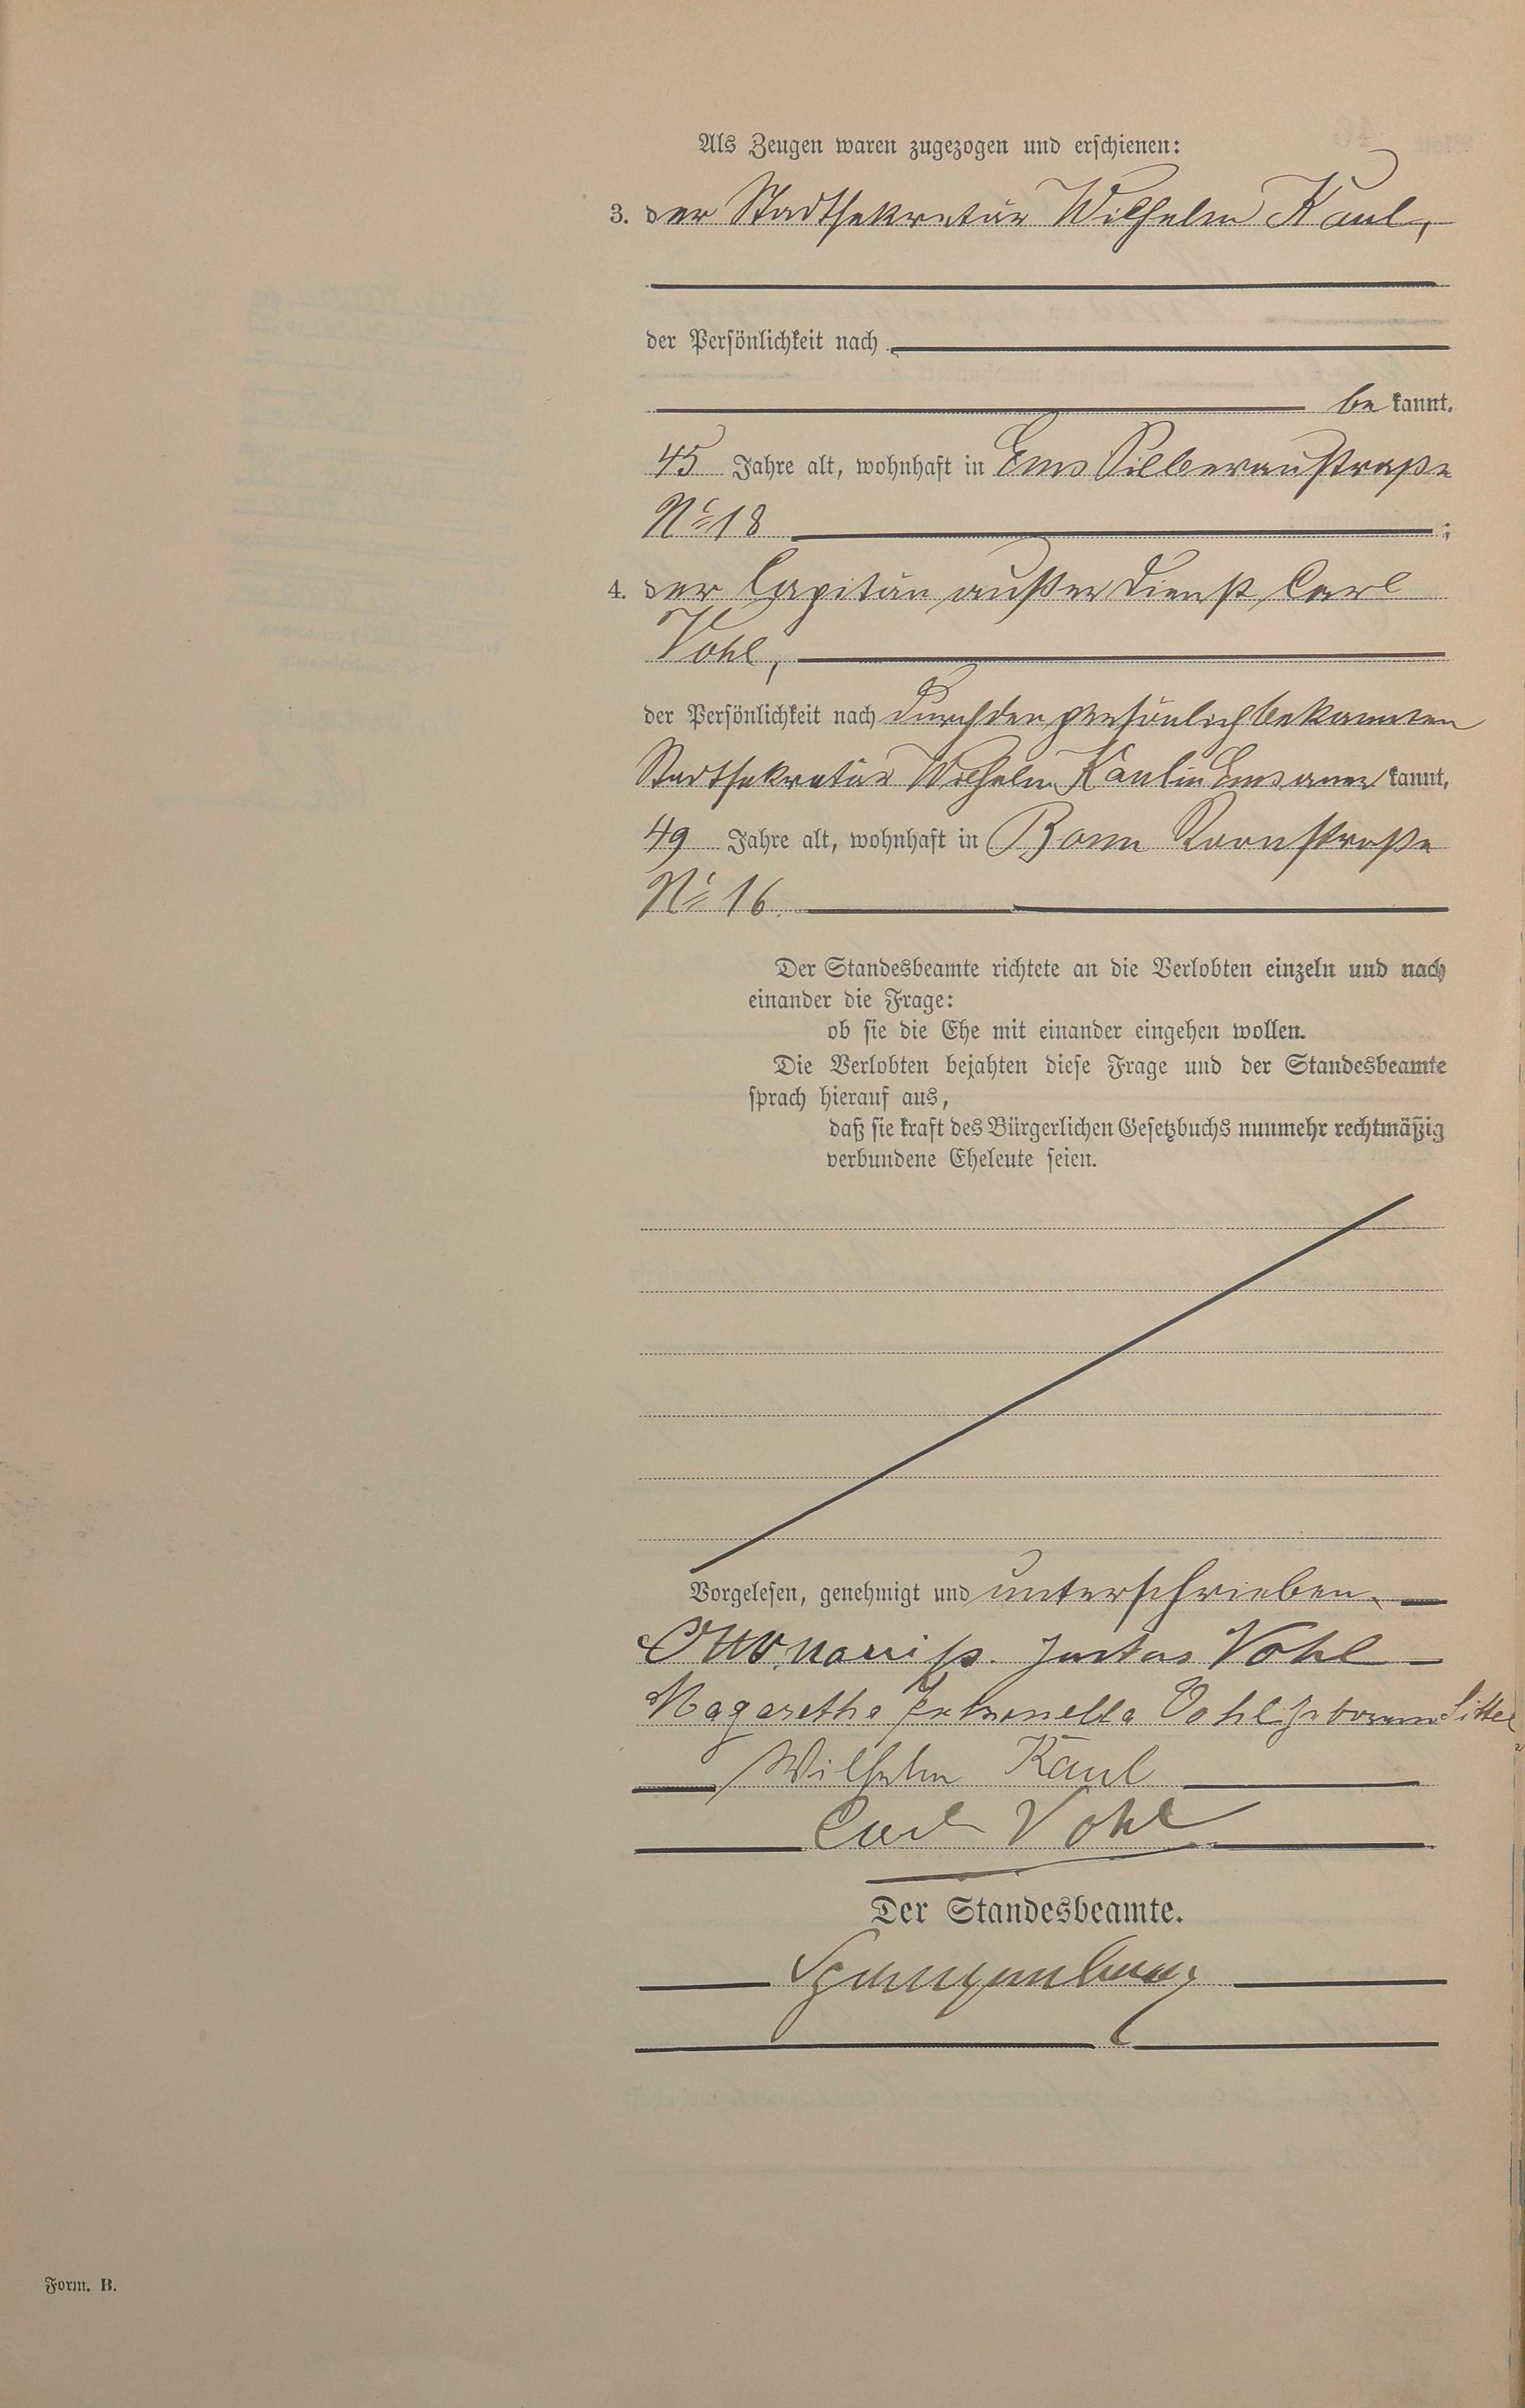 Als Zeugen waren zugezogen und erschienen:
3. der Stadtsekretär Wilhelm Kaul,
der Persönlichkeit nach
be kannt,
45 Jahre alt, wohnhaft in Ems Silberaustraße
No 18 ;
4. der Capitän außer Dienst Carl
Vohl,
der Persönlichkeit nach durch den persönlich bekannten
Stadtsekretär Wilhelm Kaul in Ems aner kannt,
49 Jahre alt, wohnhaft in Bonn Roonstraße
No 16.
Der Standesbeamte richtete an die Verlobten einzeln und nach
einander die Frage:
ob sie die Ehe mit einander eingehen wollen.
Die Verlobten bejahten diese Frage und der Standesbeamte
sprach hierauf aus,
daß sie kraft des Bürgerlichen Gesetzbuchs nunmehr rechtmäßig
verbundene Eheleute seien.
Vorgelesen, genehmigt und unterschrieben.
Otto Justus Vohl
Magaretha Petronella Vohl geborene Sittel
Wilhelm Kaul
Carl Vohl
Der Standesbeamte.
Spangenberg
Form. B.